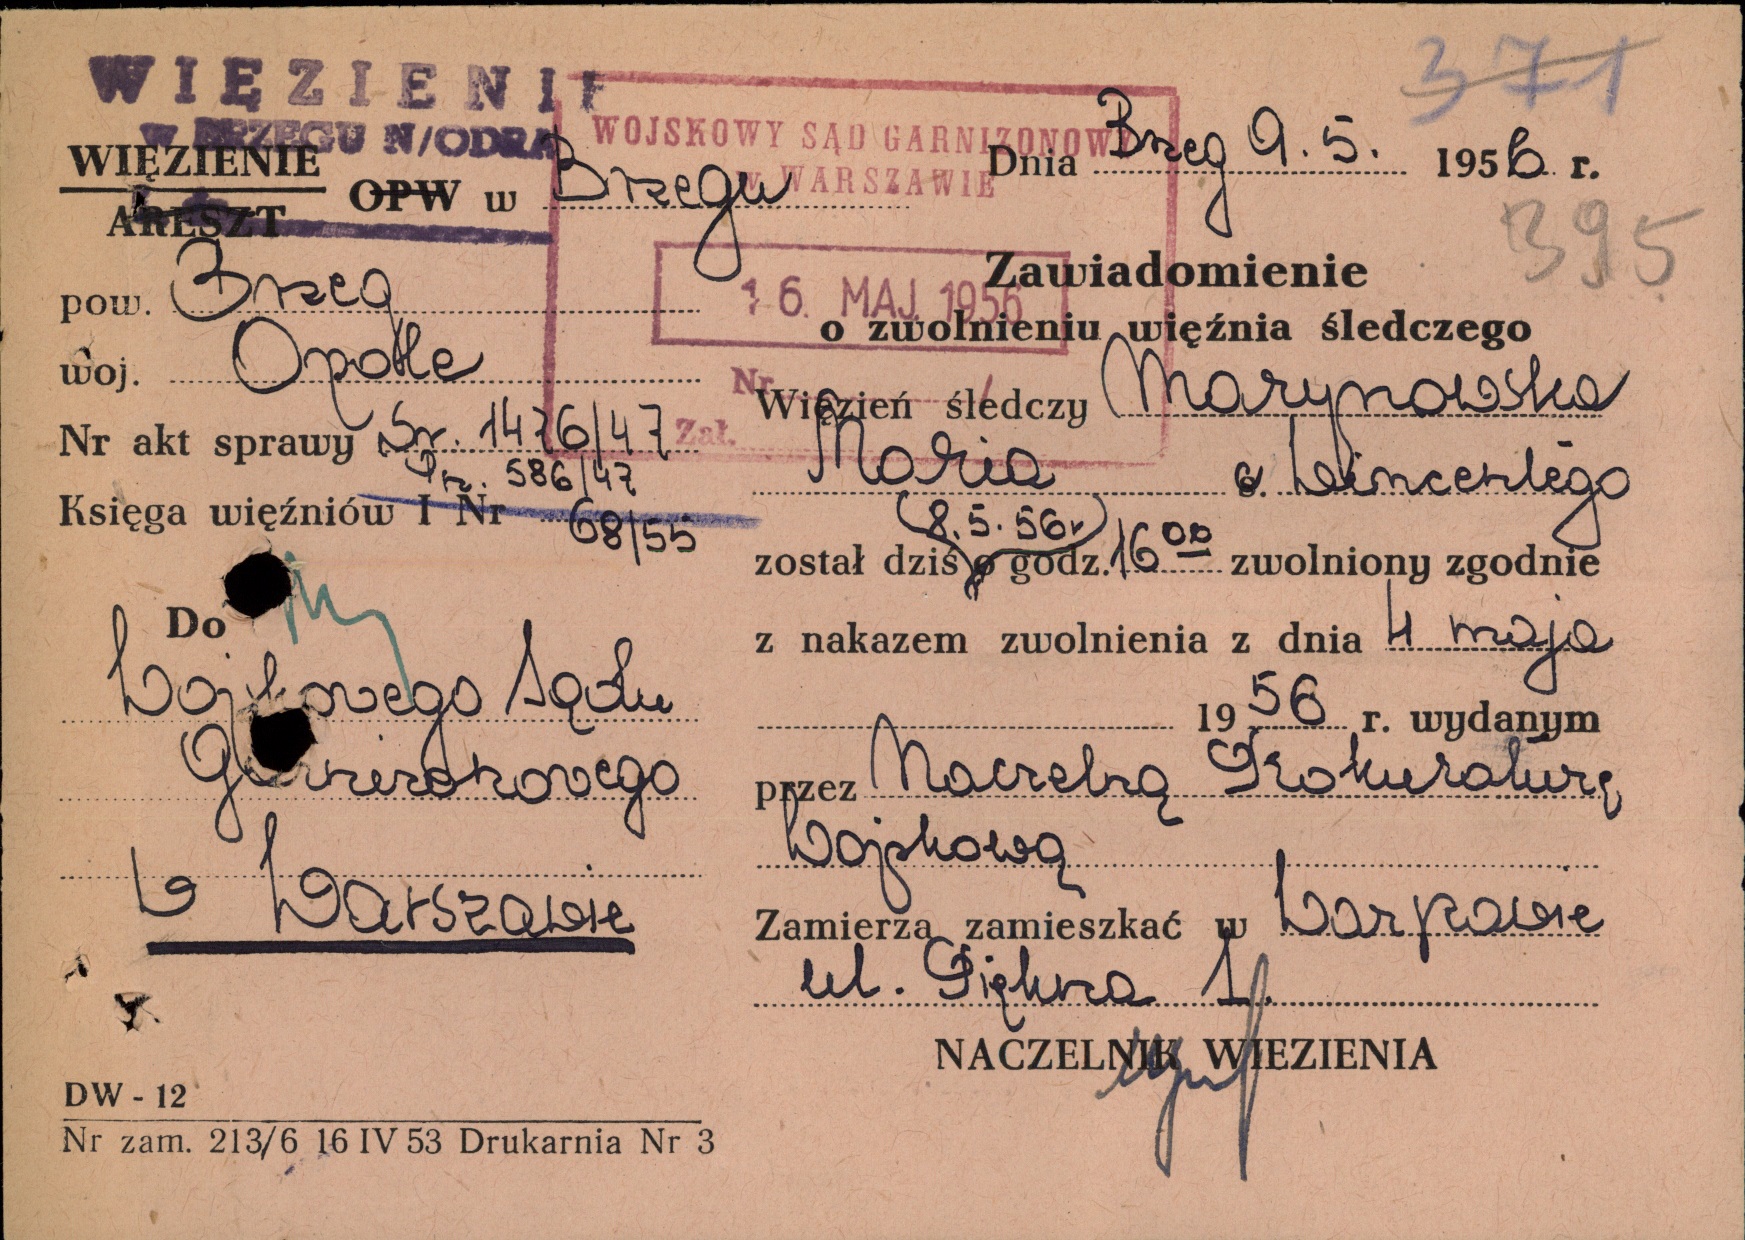 WIĘZIENIE
W BRZEGU N/ODRĄ
WIĘZIENIE
ARESZT
OPW w Brzegu
pow. Brzeg
woj. Opole
Nr akt sprawy Sr. 1476/47
Pr. 586/47
Księga więźniów I Nr 68/55
Do
Wojskowego Sądu
Garnizonowego
w Warszawie
DW - 12
Nr zam. 213/6 16 IV 53 Drukarnia Nr 3
WOJSKOWY SĄD GARNIZONOWY
w WARSZAWIE
16. MAJ 1956
Nr
Zał.
371
Dnia Brzeg 9. 5. 1956 r.
395
Zawiadomienie
o zwolnieniu więźnia śledczego
Więzień śledczy Marynowska
Maria c. Wincentego
(8. 5. 56r)
został dziś o godz. 16 00 zwolniony zgodnie
z nakazem zwolnienia z dnia 4 maja
1956 r. wydanym
przez Naczelną Prokuraturę
Wojskową
Zamierza zamieszkać w Warszawie
ul. Piękna 1.
NACZELNIK WIEZIENIA